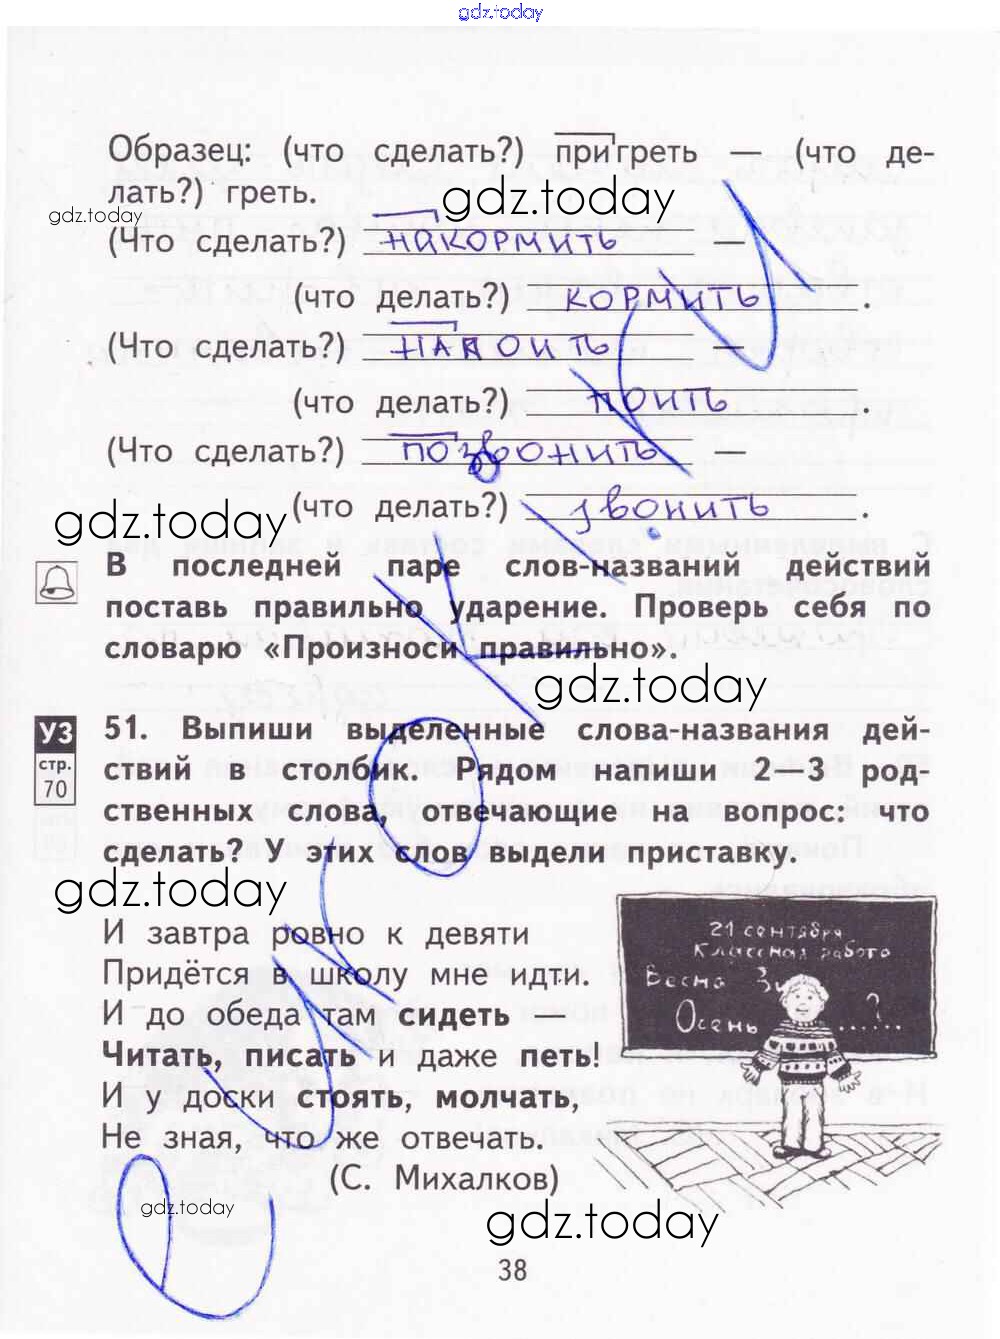 gdz.today
Образец: (что сделать?) пригреть — (что де-
лать?) греть.
gdz.today
gdz.today
(Что сделать?) накормить —
(что делать?) кормить.
(Что сделать?) напоить —
(что делать?) поить.
(Что сделать?) позвонить —
(что делать?) звонить.
gdz.today
В последней паре слов-названий действий
поставь правильно ударение. Проверь себя по
словарю «Произноси правильно».
gdz.today
УЗ
стр.
70
51. Выпиши выделенные слова-названия дей-
ствий в столбик. Рядом напиши 2—3 род-
ственных слова, отвечающие на вопрос: что
сделать? У этих слов выдели приставку.
gdz.today
gdz.today
И завтра ровно к девяти
Придётся в школу мне идти.
И до обеда там сидеть —
Читать, писать и даже петь!
И у доски стоять, молчать,
Не зная, что же отвечать.
(С. Михалков)
21 сентября
Классная работа
Весна Зи
Осень .....?
gdz.today
gdz.today
38